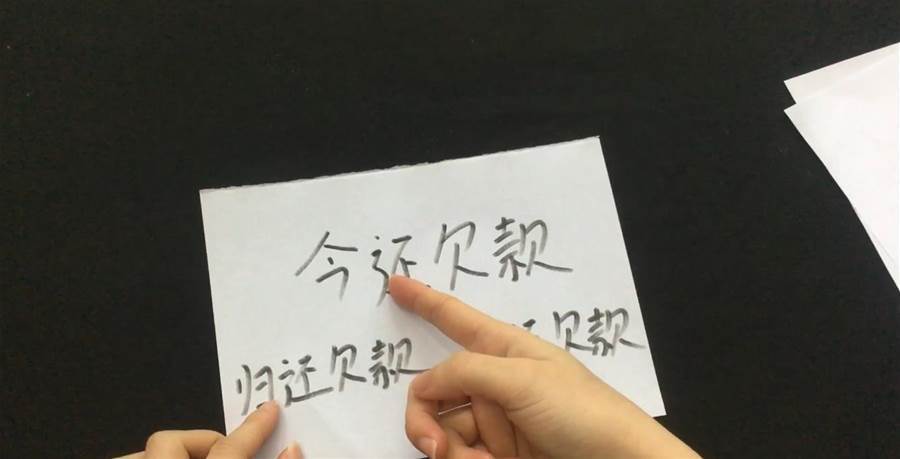 今还欠款
归还欠款
欠款